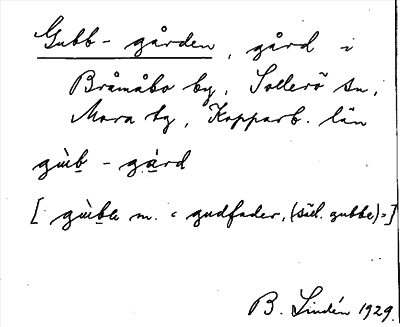 Gubb-gården, gård i
Bråmåbo by, Sollerö sn,
Mora tg, Kopparb. län
gùb̲ - gård
[ gùb̲a m. "gudfader, (säl. gubbe)"]
B. Lindén 1929.